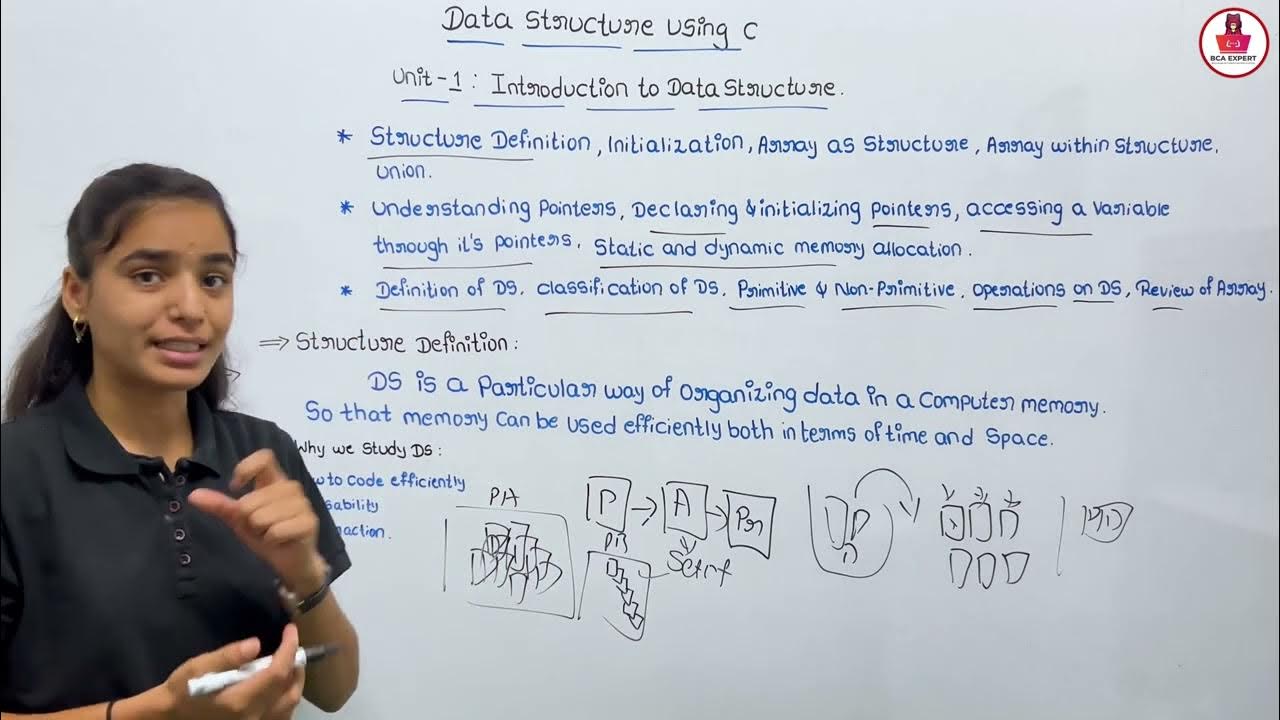 Data Structure using C
BCA EXPERT
Unit-1 : Introduction to Data Structure.
* Structure Definition, Initialization, Array as Structure, Array within Structure,
Union.
* Understanding Pointers, Declaring & initializing pointers, accessing a variable
through it's pointers. Static and dynamic memory allocation.
* Definition of DS. classification of DS. Primitive & Non-Primitive, operations on DS, Review of Array.
=> Structure Definition:
DS is a Particular way of organizing data in a Computer memory.
So that memory can be used efficiently both in terms of time and Space.
Why we Study DS:
to Code efficiently
PA
P → A → Pr
PA